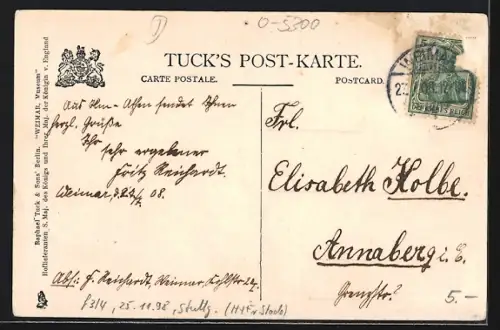 O-5300
TUCK'S POST-KARTE.
CARTE POSTALE. POSTCARD.
Raphael Tuck & Sons' Berlin. "WEIMAR, Museum"
Hoflieferanten S. Maj. des Königs und Ihrer Maj. der Königin v. England
Aus Ilm-Athen sendet Ihnen
herzl. Grüße
Ihr
sehr ergebener
Fritz Reichardt.
Weimar, 08.
Abs: F. Reichardt, Weimar
Frl.
Elisabeth Kolbe.
Annaberg i. E.
DEUTSCHES REICH
f3/4, 25.11.98, Stuttg.
5.-